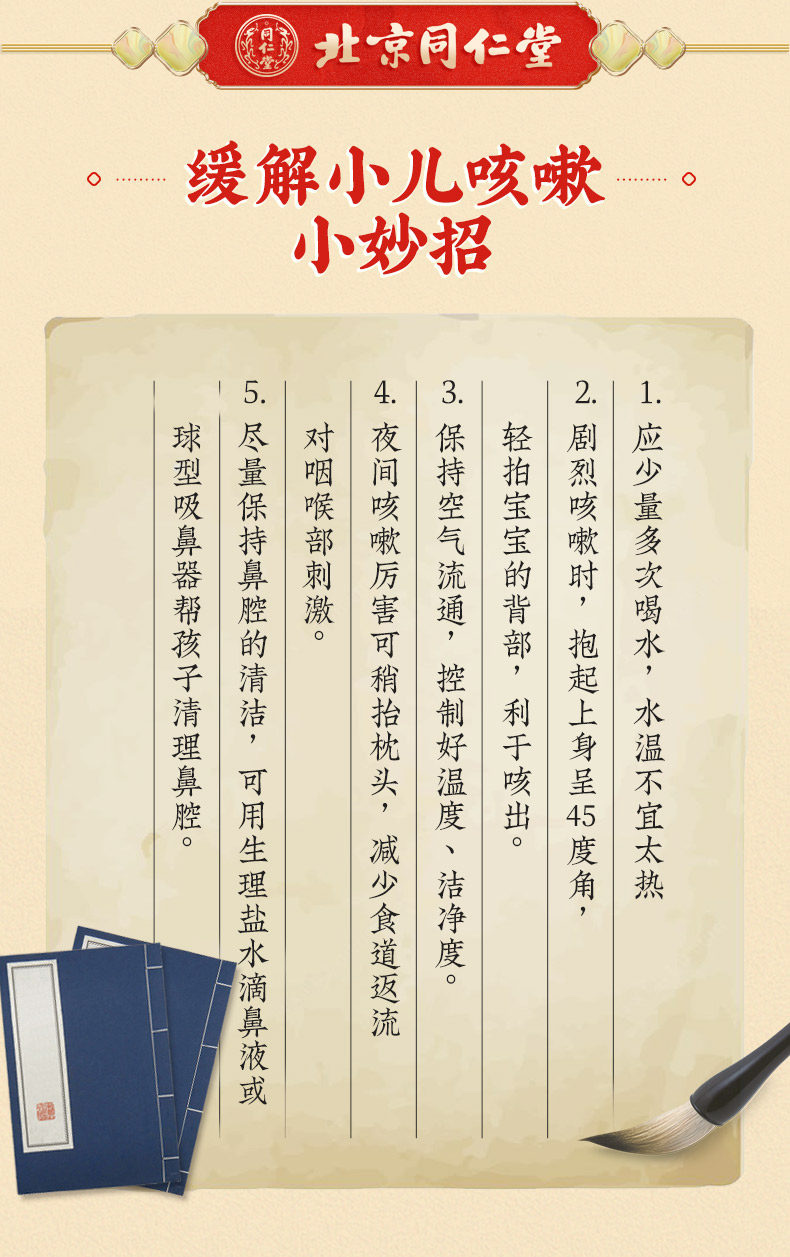 同仁堂
北京同仁堂
缓解小儿咳嗽
小妙招
1. 应少量多次喝水，水温不宜太热
2. 剧烈咳嗽时，抱起上身呈45度角，
轻拍宝宝的背部，利于咳出。
3. 保持空气流通，控制好温度、洁净度。
4. 夜间咳嗽厉害可稍抬枕头，减少食道返流
对咽喉部刺激。
5. 尽量保持鼻腔的清洁，可用生理盐水滴鼻液或
球型吸鼻器帮孩子清理鼻腔。